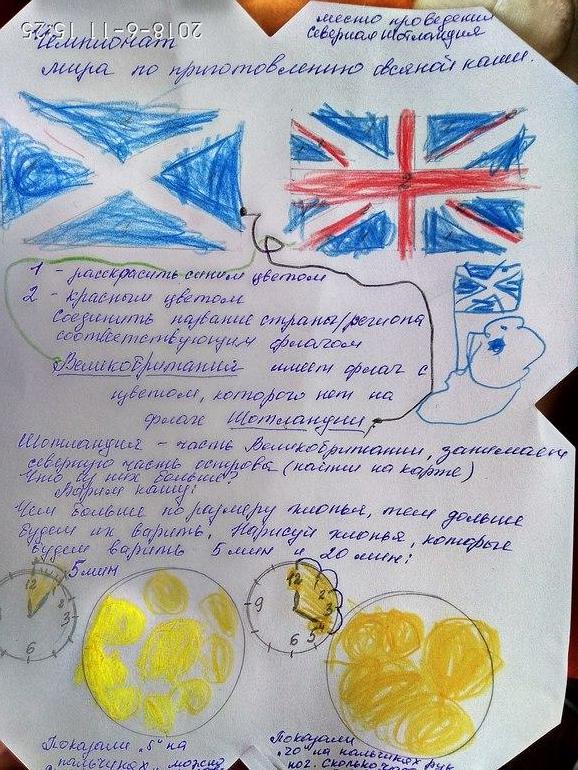 2018-6-11 15:25
Чемпионат
место проведения
северная Шотландия
мира по приготовлению овсяной каши.
1 - расскрасить синим цветом
2 - красным цветом
Соединить название страны/региона
соответствующим флагом
Великобритания имеет флаг с
цветом, которого нет на
флаге Шотландии
Шотландия - часть Великобритании, занимает
северную часть острова (найти на карте)
Что из них больше?
Варим кашу:
Чем больше по размеру хлопья, тем дольше
будем их варить. Нарисуй хлопья, которые
будем варить 5 мин и 20 мин:
5 мин
12
2
3
6
12
1
2
3
9
6
5
Показали "5" на
пальчиках
можно
Показали
"20" на пальчиках рук
ног. Сколько